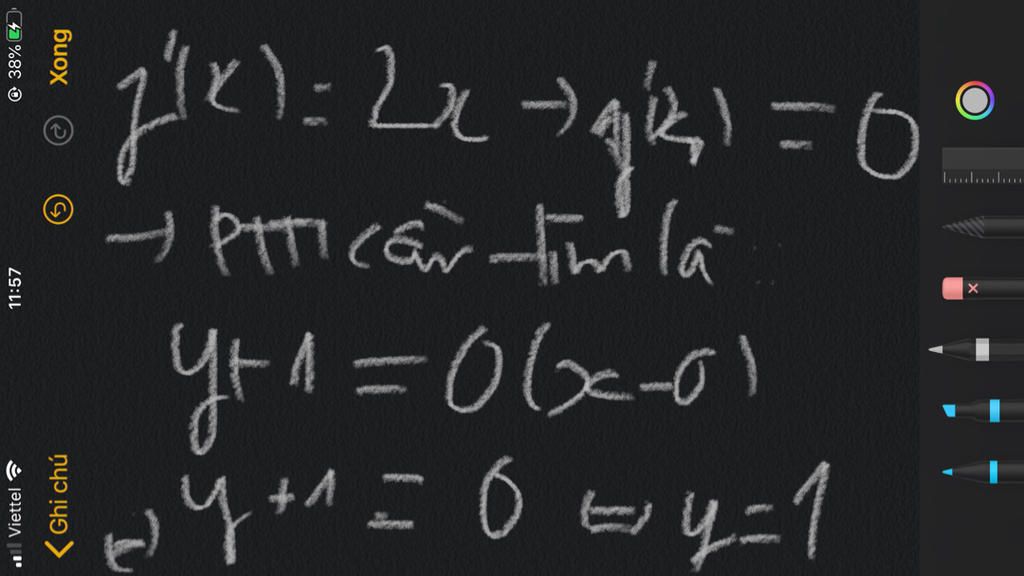 y'(x) = 2x → y'(x₀) = 0
→ PTTT cần tìm là :
y + 1 = 0(x - 0)
⇔ y + 1 = 0 ⇔ y = 1
Viettel
11:57
38%
Ghi chú
Xong